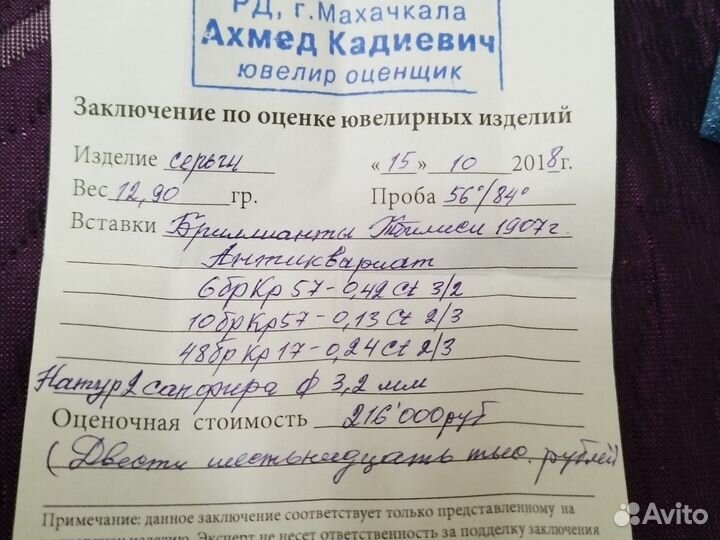 РД, г. Махачкала
Ахмед Кадиевич
ювелир оценщик
Заключение по оценке ювелирных изделий
Изделие серьги «15» 10 2018г.
Вес 12,90 гр. Проба 56°/84°
Вставки Бриллианты Тбилиси 1907г.
Антиквариат
6брКр57-0,42Ct 3/2
10брКр57-0,13Ct 2/3
48брКр17-0,24Ct 2/3
Натур 2 сапфира ф 3,2 мм
Оценочная стоимость 216'000руб
(Двести шестьнадцать тыс. рублей
Примечание: данное заключение соответствует только представленному на
изделию. Эксперт не несет ответственность за подделку заключения
Avito